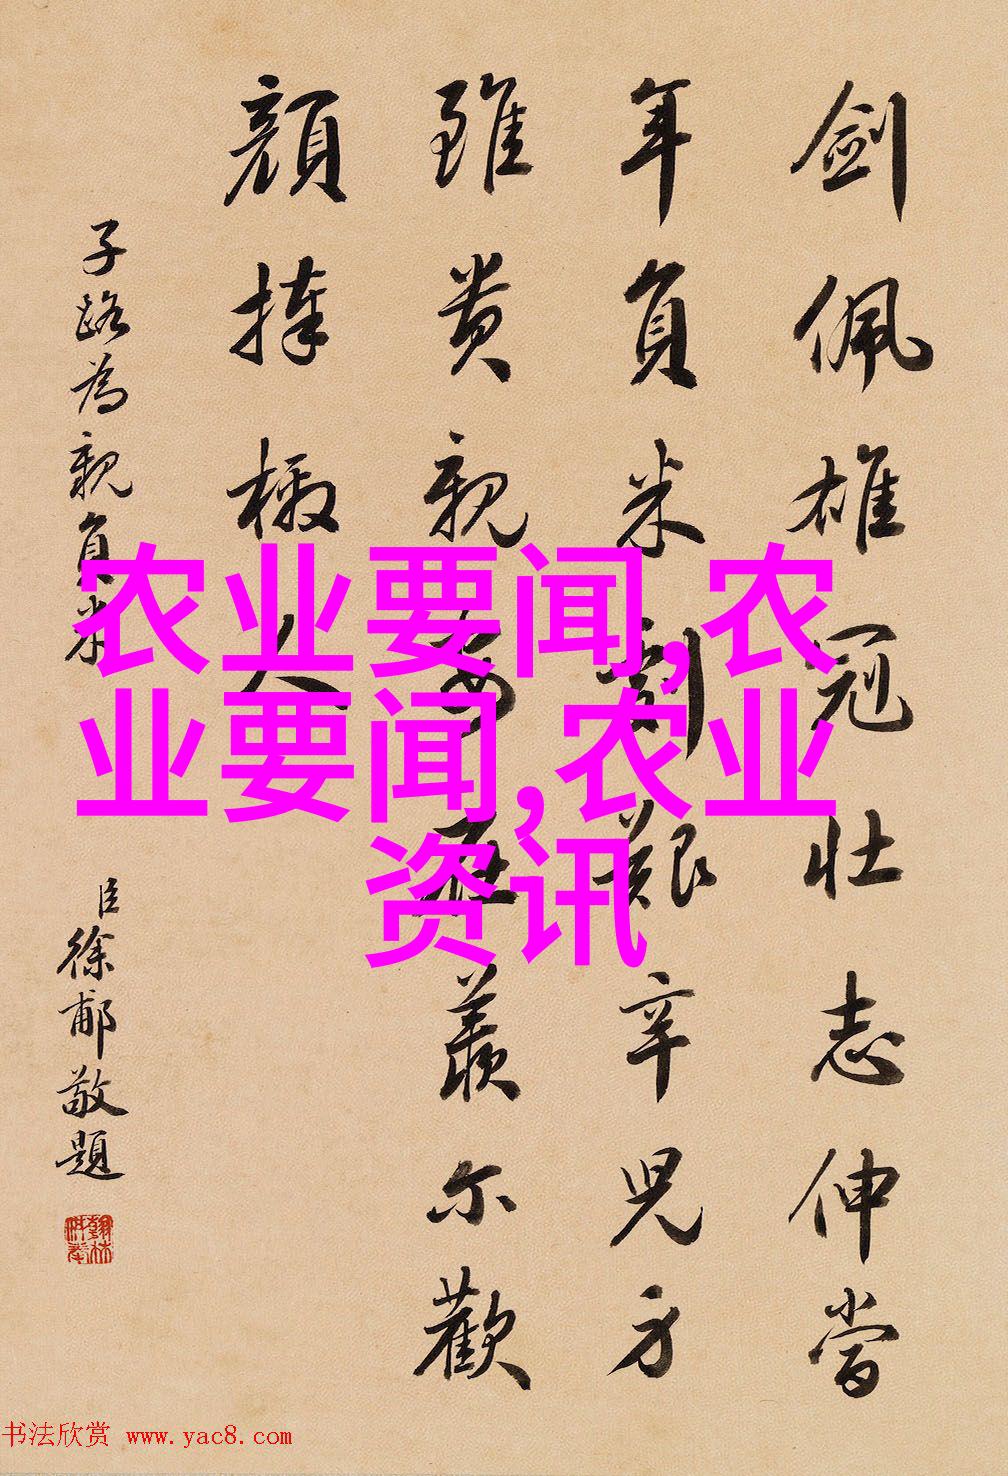 劍佩雄冠壯志伸當
年負米劇艱辛兒方
雖貴親安在羨爾歡
顏捧檄人
子路為親負米
臣徐郙敬題
农业要闻,农
业要闻,农业
资讯
书法欣赏 www.yac8.com